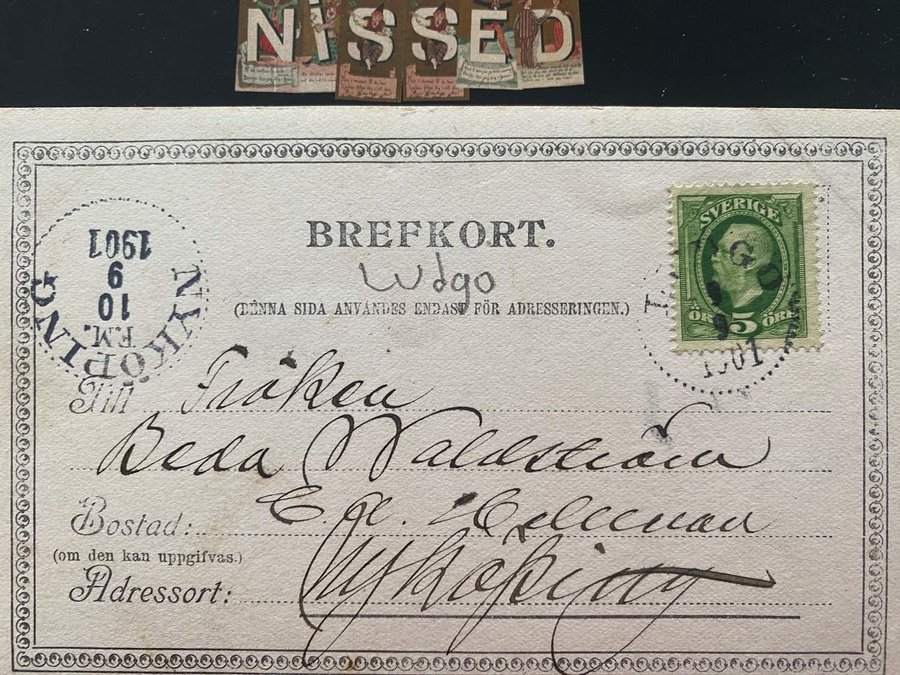 NISSED
BREFKORT.
Ludgo
(DENNA SIDA ANVÄNDES ENDAST FÖR ADRESSERINGEN.)
SVERIGE
5
ÖRE ÖRE
1901
NYKÖPING
1901
9
10
F.M.
Till Fröken
Beda Waldström
Bostad:
(om den kan uppgifvas.)
Adressort: Nyköping